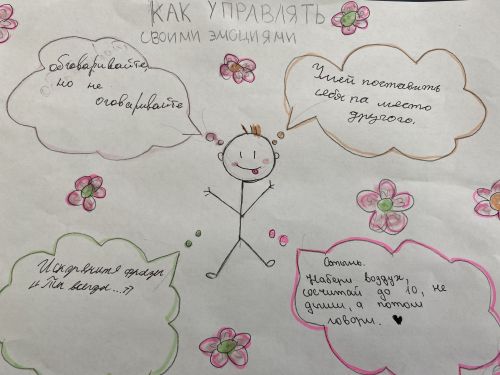 КАК УПРАВЛЯТЬ
СВОИМИ ЭМОЦИЯМИ
обговаривайте,
но не
оговаривайте
Умей поставить
себя на место
другого.
Искорените фразы
"Ты всегда..."
Стоп.
Набери воздух,
сосчитай до 10, не
дыши, а потом
говори.